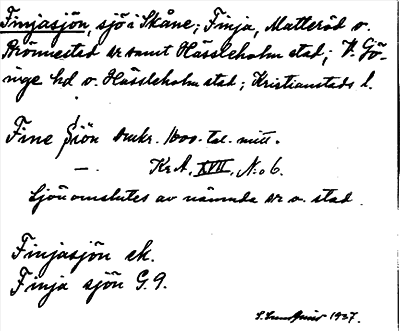 Finjasjön, sjö i Skåne; Finja, Matteröd o.
Brönnestad sr samt Hässleholm stad; V. Gö-
inge hd o. Hässleholm stad; Kristianstads l.
Fine Siön omkr. 1600-tal. mitt.
— KrA, XVII, No 6.
Sjön omslutes av nämnda sr o. stad.
Finjasjön ek.
Finja sjön G. 9.
1927.